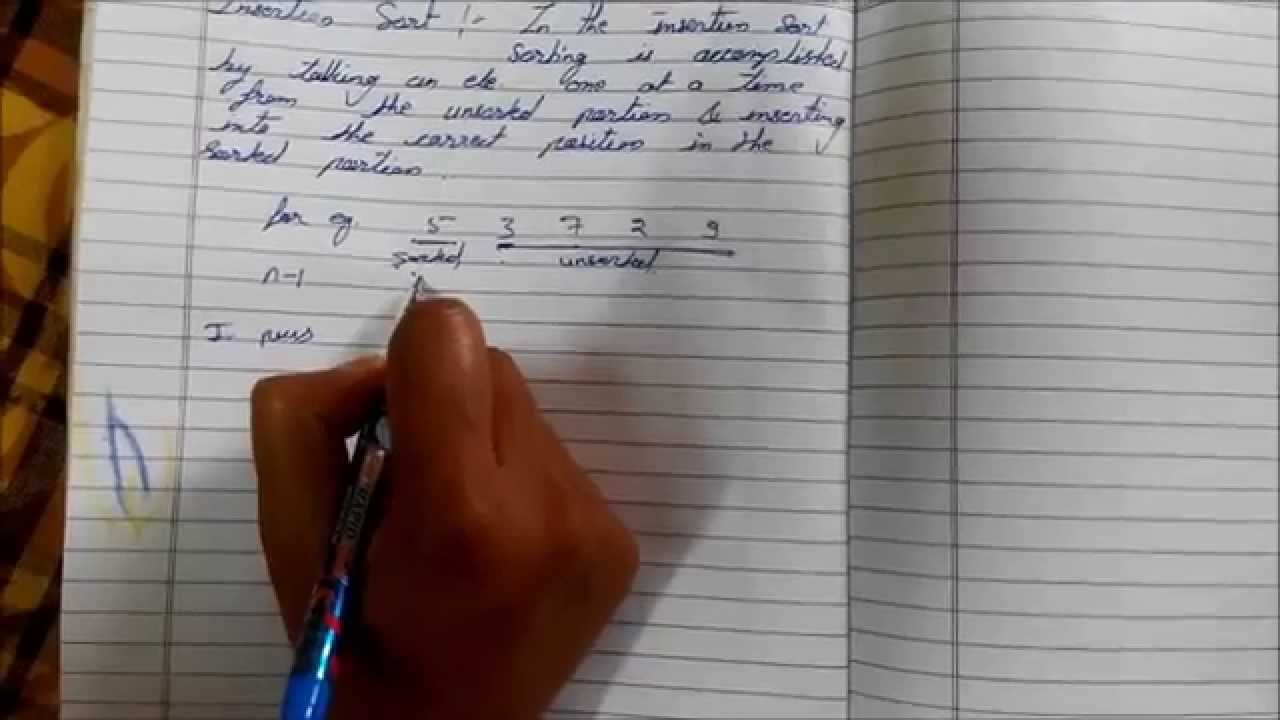 Insertion Sort :- In the insertion sort
sorting is accomplished
by talking an ele one at a time
from the unsorted portion & inserting
into the correct position in the
sorted portion.
for eg. 5 3 7 2 9
sorted unsorted
n-1
I pass